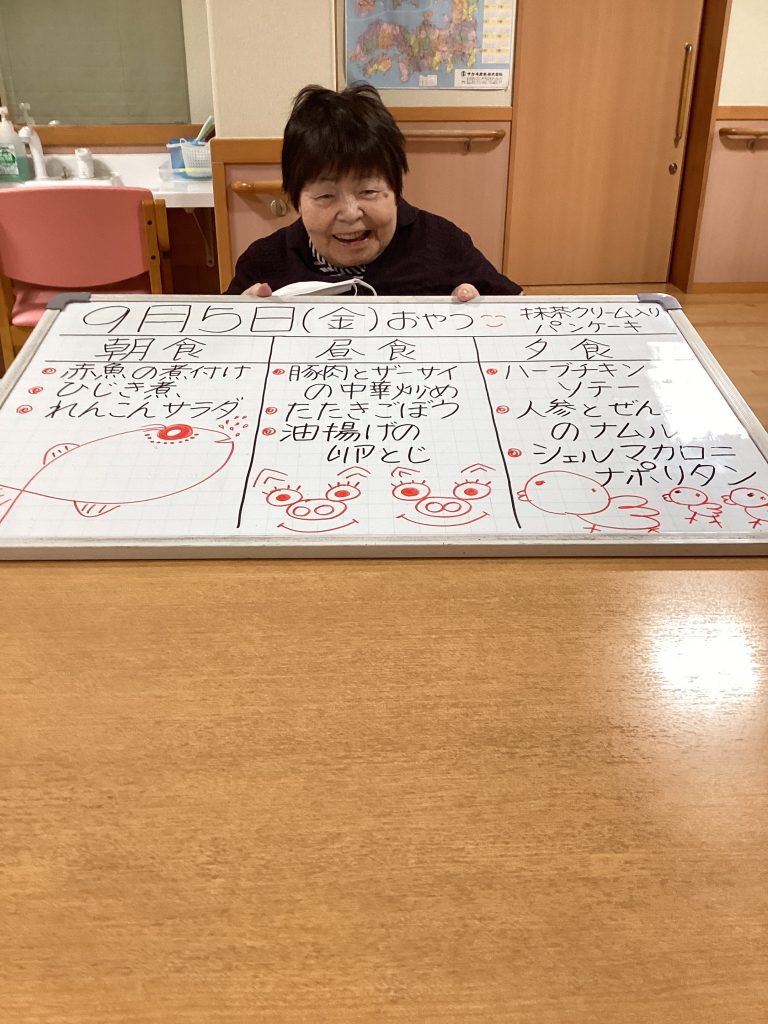 9月5日(金)おやつ 抹茶クリーム入り
パンケーキ
朝食
赤魚の煮付け
ひじき煮、
れんこんサラダ
昼食
豚肉とザーサイ
の中華炒め
たたきごぼう
油揚げの
卵とじ
夕食
ハーブチキン
ソテー
人参とぜん
のナムル
シェルマカロニ
ナポリタン